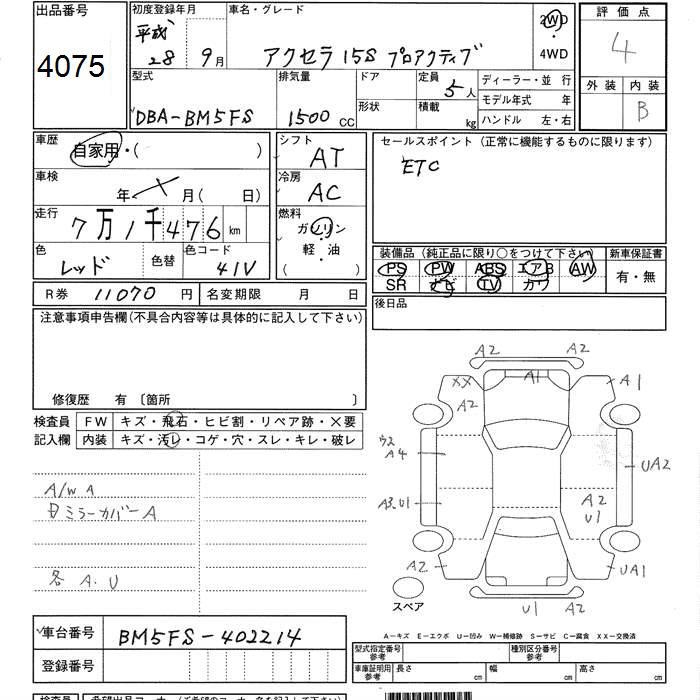 出品番号
4075
初度登録年月
平成
28 9月
車名・グレード
アクセラ 15S プロアクティブ
2WD
・
4WD
評価点
4
外装 内装
B
型式
DBA-BM5FS
排気量
1500 CC
ドア
形状
定員
5人
積載
kg
ディーラー・並 行
モデル年式 年
ハンドル 左・右
車歴
自家用・( )
車検
年 月( 日)
走行
7万1千476 km
色
レッド
色替
色コード
41V
シフト
AT
冷房
AC
燃料
ガソリン
軽・油
( )
セールスポイント (正常に機能するものに限ります)
ETC
装備品 (純正品に限り○をつけて下さい)
PS PW ABS エアB AW
SR ナビ TV カワ
新車保証書
有・無
後日品
R券 11070 円
名変期限 月 日
注意事項申告欄(不具合内容等は具体的に記入して下さい)
修復歴 有 〔箇所 〕
検査員
記入欄
FW キズ・飛石・ヒビ割・リペア跡・×要
内装 キズ・汚レ・コゲ・穴・スレ・キレ・破レ
A/W A
ミラーカバー A
各 A.U
A2 A2
XX A1 A1
A2
ウス
A4
UA2
A3.U1
A2
U1
A2 UA1
U1 A2
スペア
A－キズ E－エクボ U－凹み W－補修跡 S－サビ C－腐食 XX－交換済
車台番号
BM5FS-402214
登録番号
型式指定番号
参考
種別区分番号
参考
車庫証明用
参考
長さ cm
幅 cm
高さ cm
検査員